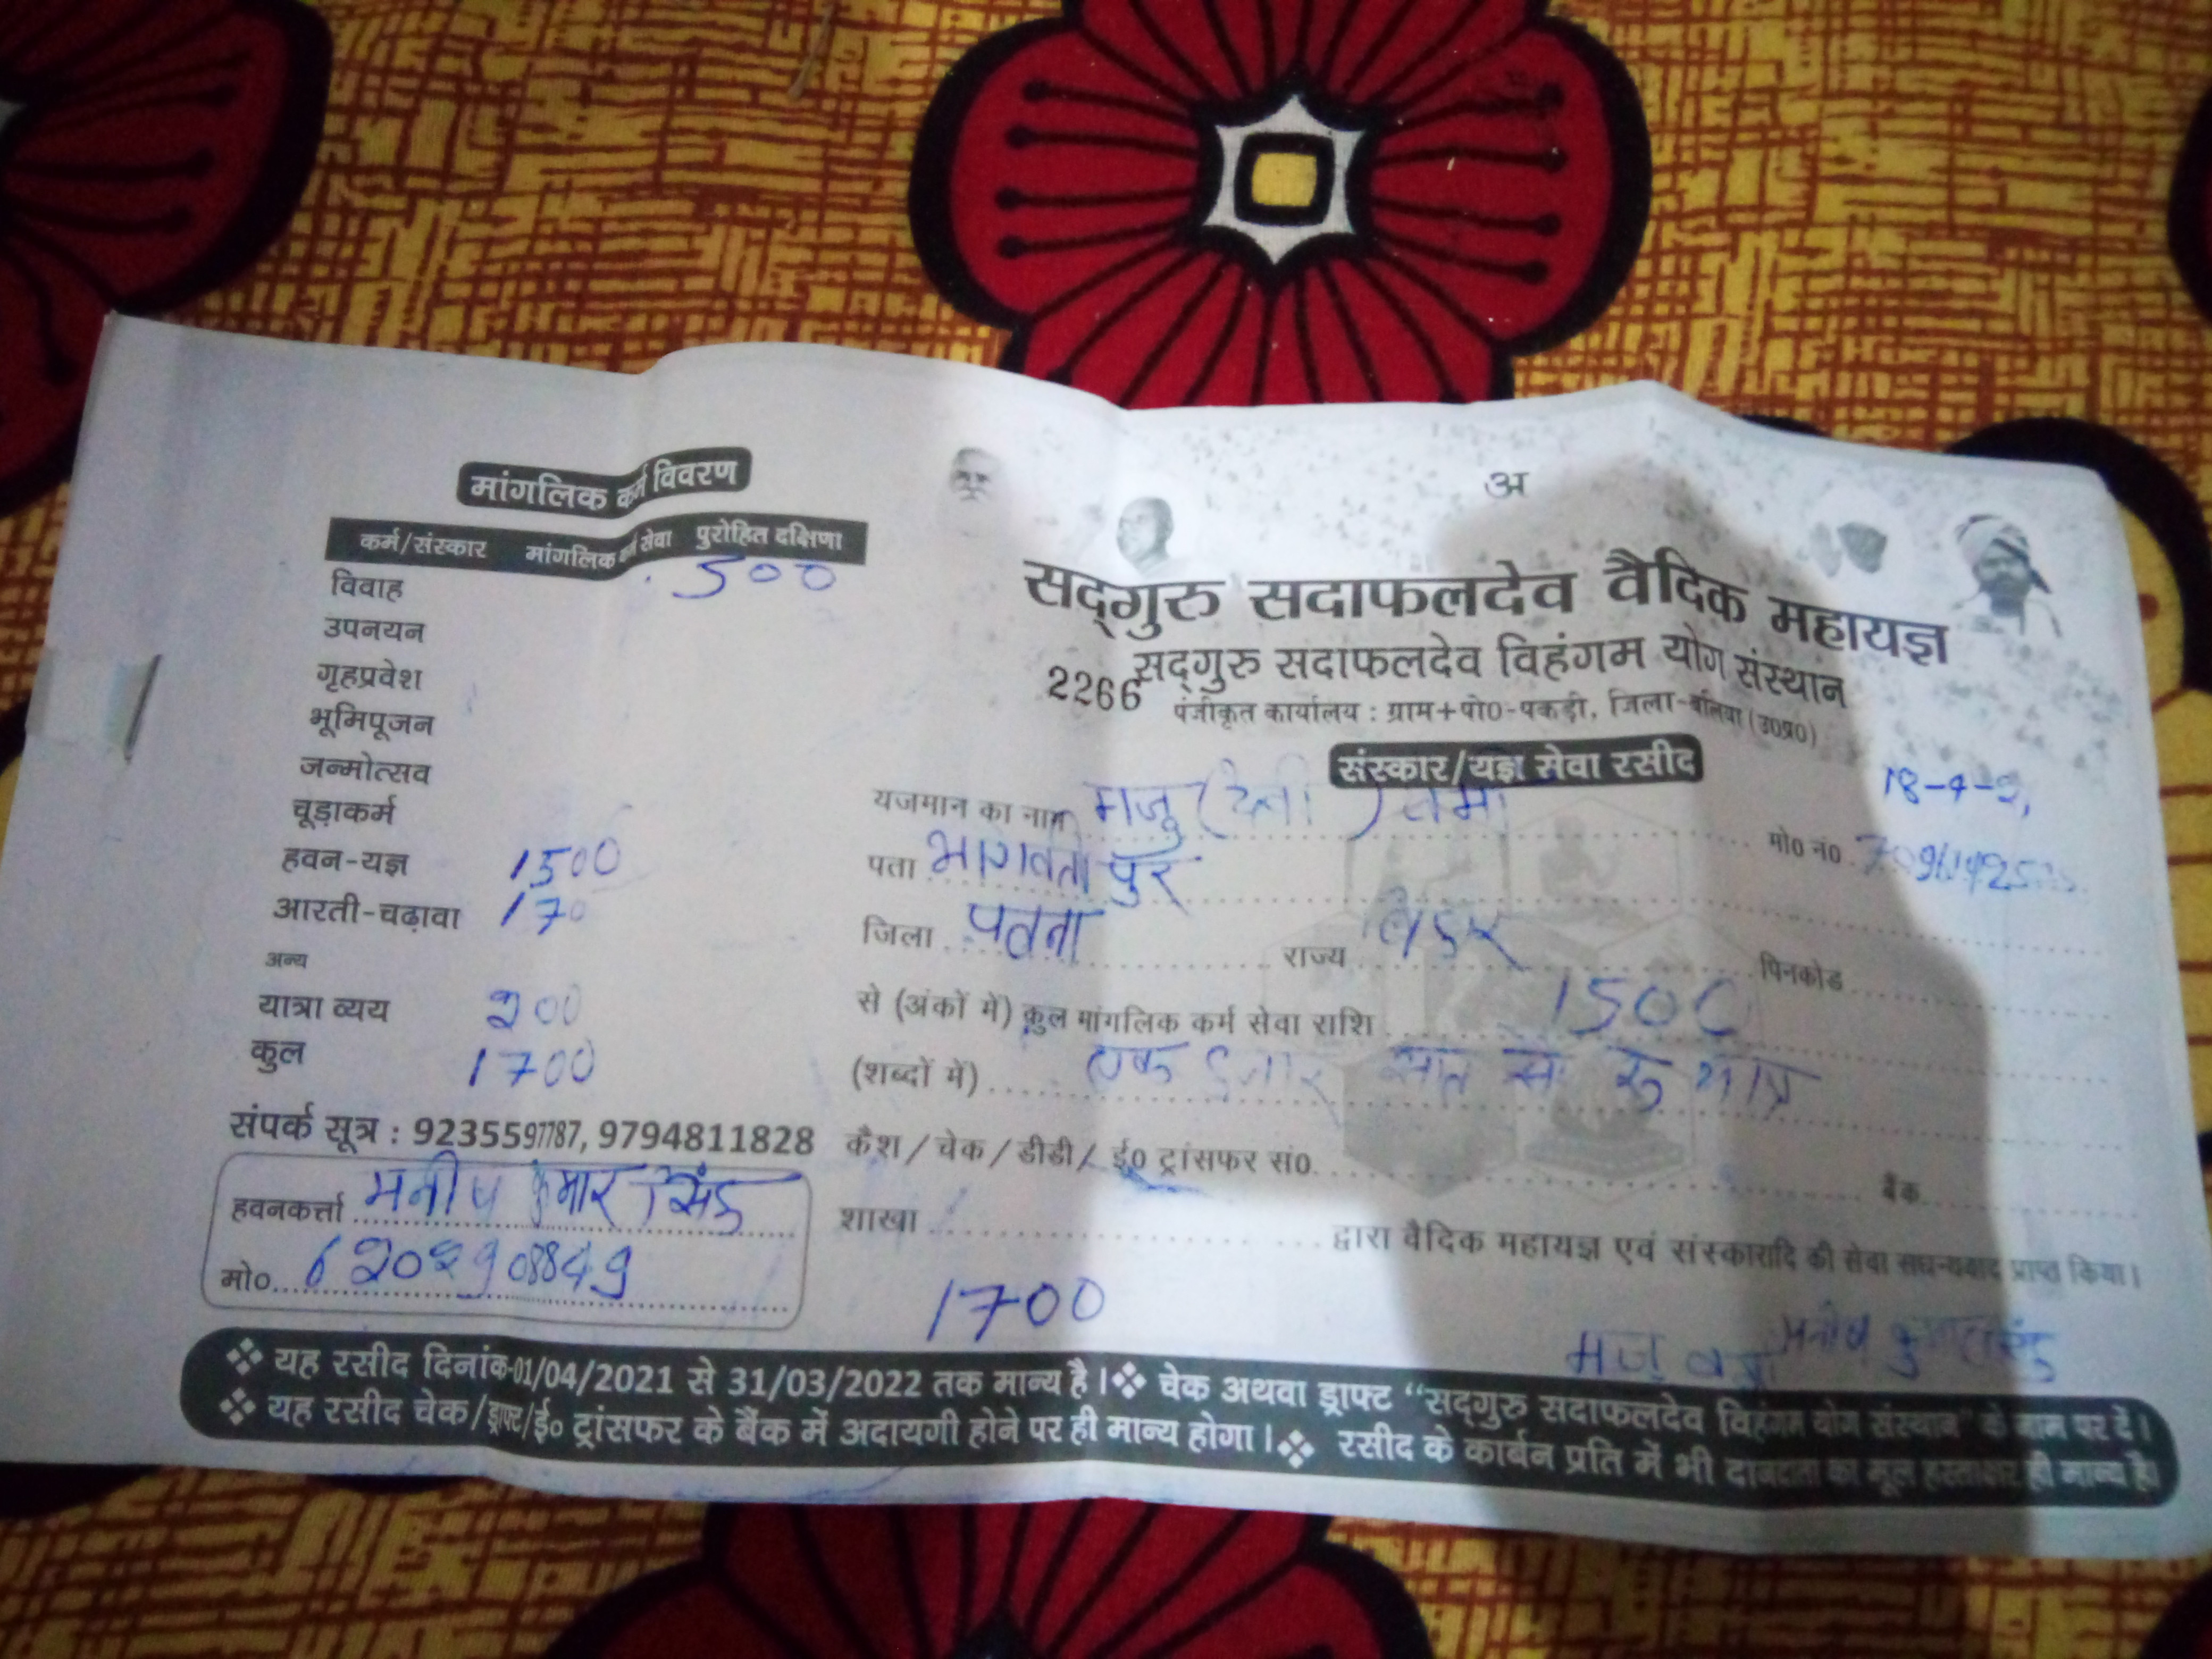 मांगलिक कर्म विवरण
कर्म/संस्कार मांगलिक कर्म सेवा पुरोहित दक्षिणा
विवाह 500
उपनयन
गृहप्रवेश
भूमिपूजन
जन्मोत्सव
चूड़ाकर्म
हवन-यज्ञ 1500
आरती-चढ़ावा 170
अन्य
यात्रा व्यय 200
कुल 1700
संपर्क सूत्र : 9235597787, 9794811828
हवनकर्त्ता मनीष कुमार सिंह
मो०
अ
सद्गुरु सदाफलदेव वैदिक महायज्ञ
सद्गुरु सदाफलदेव विहंगम योग संस्थान
2266
पंजीकृत कार्यालय : ग्राम+पो0-पकड़ी, जिला-बलिया (उ0प्र0)
संस्कार/यज्ञ सेवा रसीद
यजमान का नाम मजु मो0 न0
पता भागवतीपुर
जिला पतना राज्य पिनकोड
से (अंकों में) कुल मांगलिक कर्म सेवा राशि 1500
(शब्दों में) एक हजार सात सौ रु मात्र
कैश / चेक / डीडी / ई0 ट्रांसफर सं0 बैंक
शाखा द्वारा वैदिक महायज्ञ एवं संस्कारादि की सेवा सधन्यवाद प्राप्त किया।
1700
❖ यह रसीद दिनांक-01/04/2021 से 31/03/2022 तक मान्य है। ❖ चेक अथवा ड्राफ्ट “सद्गुरु सदाफलदेव विहंगम योग संस्थान” के नाम पर दें।
❖ यह रसीद चेक/ड्राफ्ट/ई० ट्रांसफर के बैंक में अदायगी होने पर ही मान्य होगा। ❖ रसीद के कार्बन प्रति में भी दानदाता का मूल हस्ताक्षर ही मान्य है।